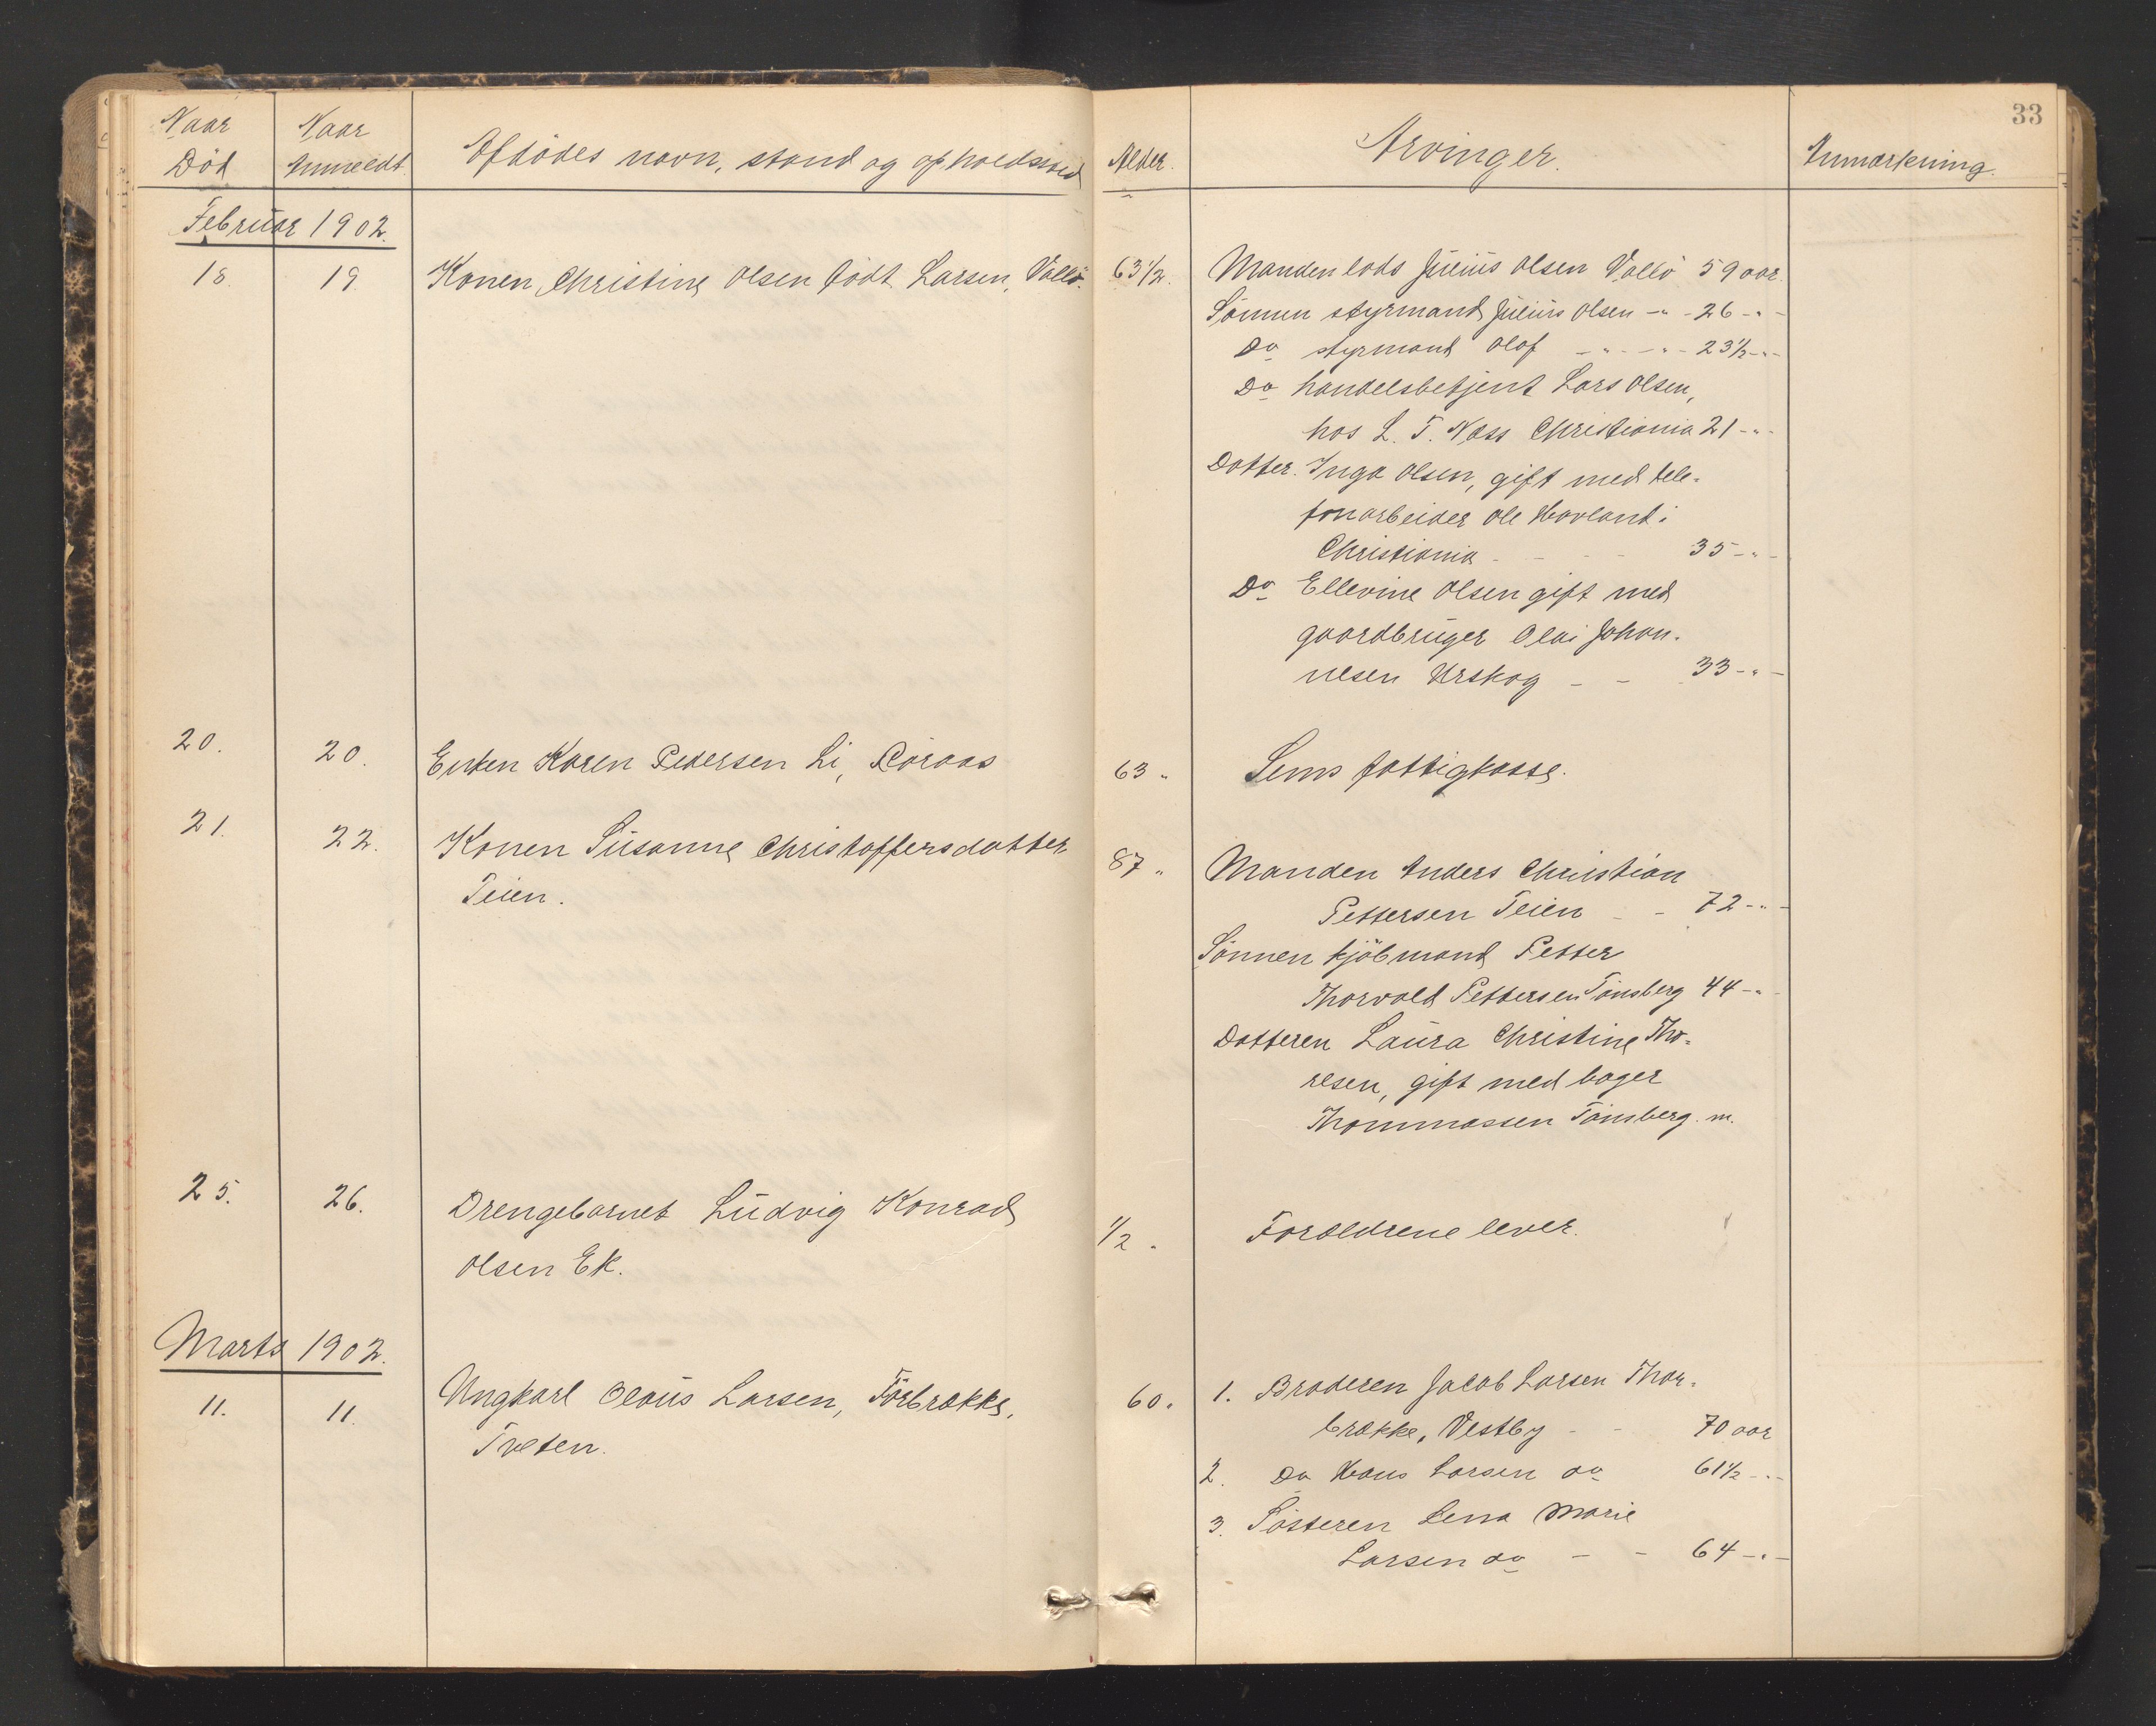 33
Naar Død
Naar Anmeldt
Afdødes navn, stand og opholdssted
Alder.
Arvinger.
Anmærkning.
Februar 1902.
18. 19. Konen Christine Olsen født Larsen, Vallø. 63 1/2.
Manden lods Julius Olsen Vallø 59 aar.
Sønnen styrmand Julius Olsen -"- 26 -"-
Do styrmand Olaf -"- -"- 23 1/2 -"-
Do handelsbetjent Lars Olsen,
hos L. T. Næss Christiania 21 -"-
Datter. Inga Olsen, gift med tele-
fonarbeider Ole Hovland i
Christiania - - - 35 -"-
Do Ellevine Olsen gift med
gaardbruger Olai Johan-
nesen Urskog - - 33 -"-
20. 20. Enken Karen Pedersen Li, Røraas 63 " Sems fattigkasse.
21. 22. Konen Susanne Christoffersdatter
Teien.
87 "
Manden Anders Christian
Pettersen Teien - - 72 -"-
Sønnen kjøbmand Petter
Thorvald Pettersen Tønsberg 44 -"-
Datteren Laura Christine Tho-
resen, gift med bager
Thommassen Tønsberg. m.
25. 26. Drengebarnet Ludvig Konrad
Olsen Ek.
1/2 " Forældrene lever.
Marts 1902.
11. 11. Ungkarl Olaus Larsen, Torbrække,
Tveten.
60 "
1. Broderen Jacob Larsen Thor-
brække, Vestby - - 70 aar
2. Do Hans Larsen do 61 1/2 -"-
3. Søsteren Lena Marie
Larsen do - - 64 -"-